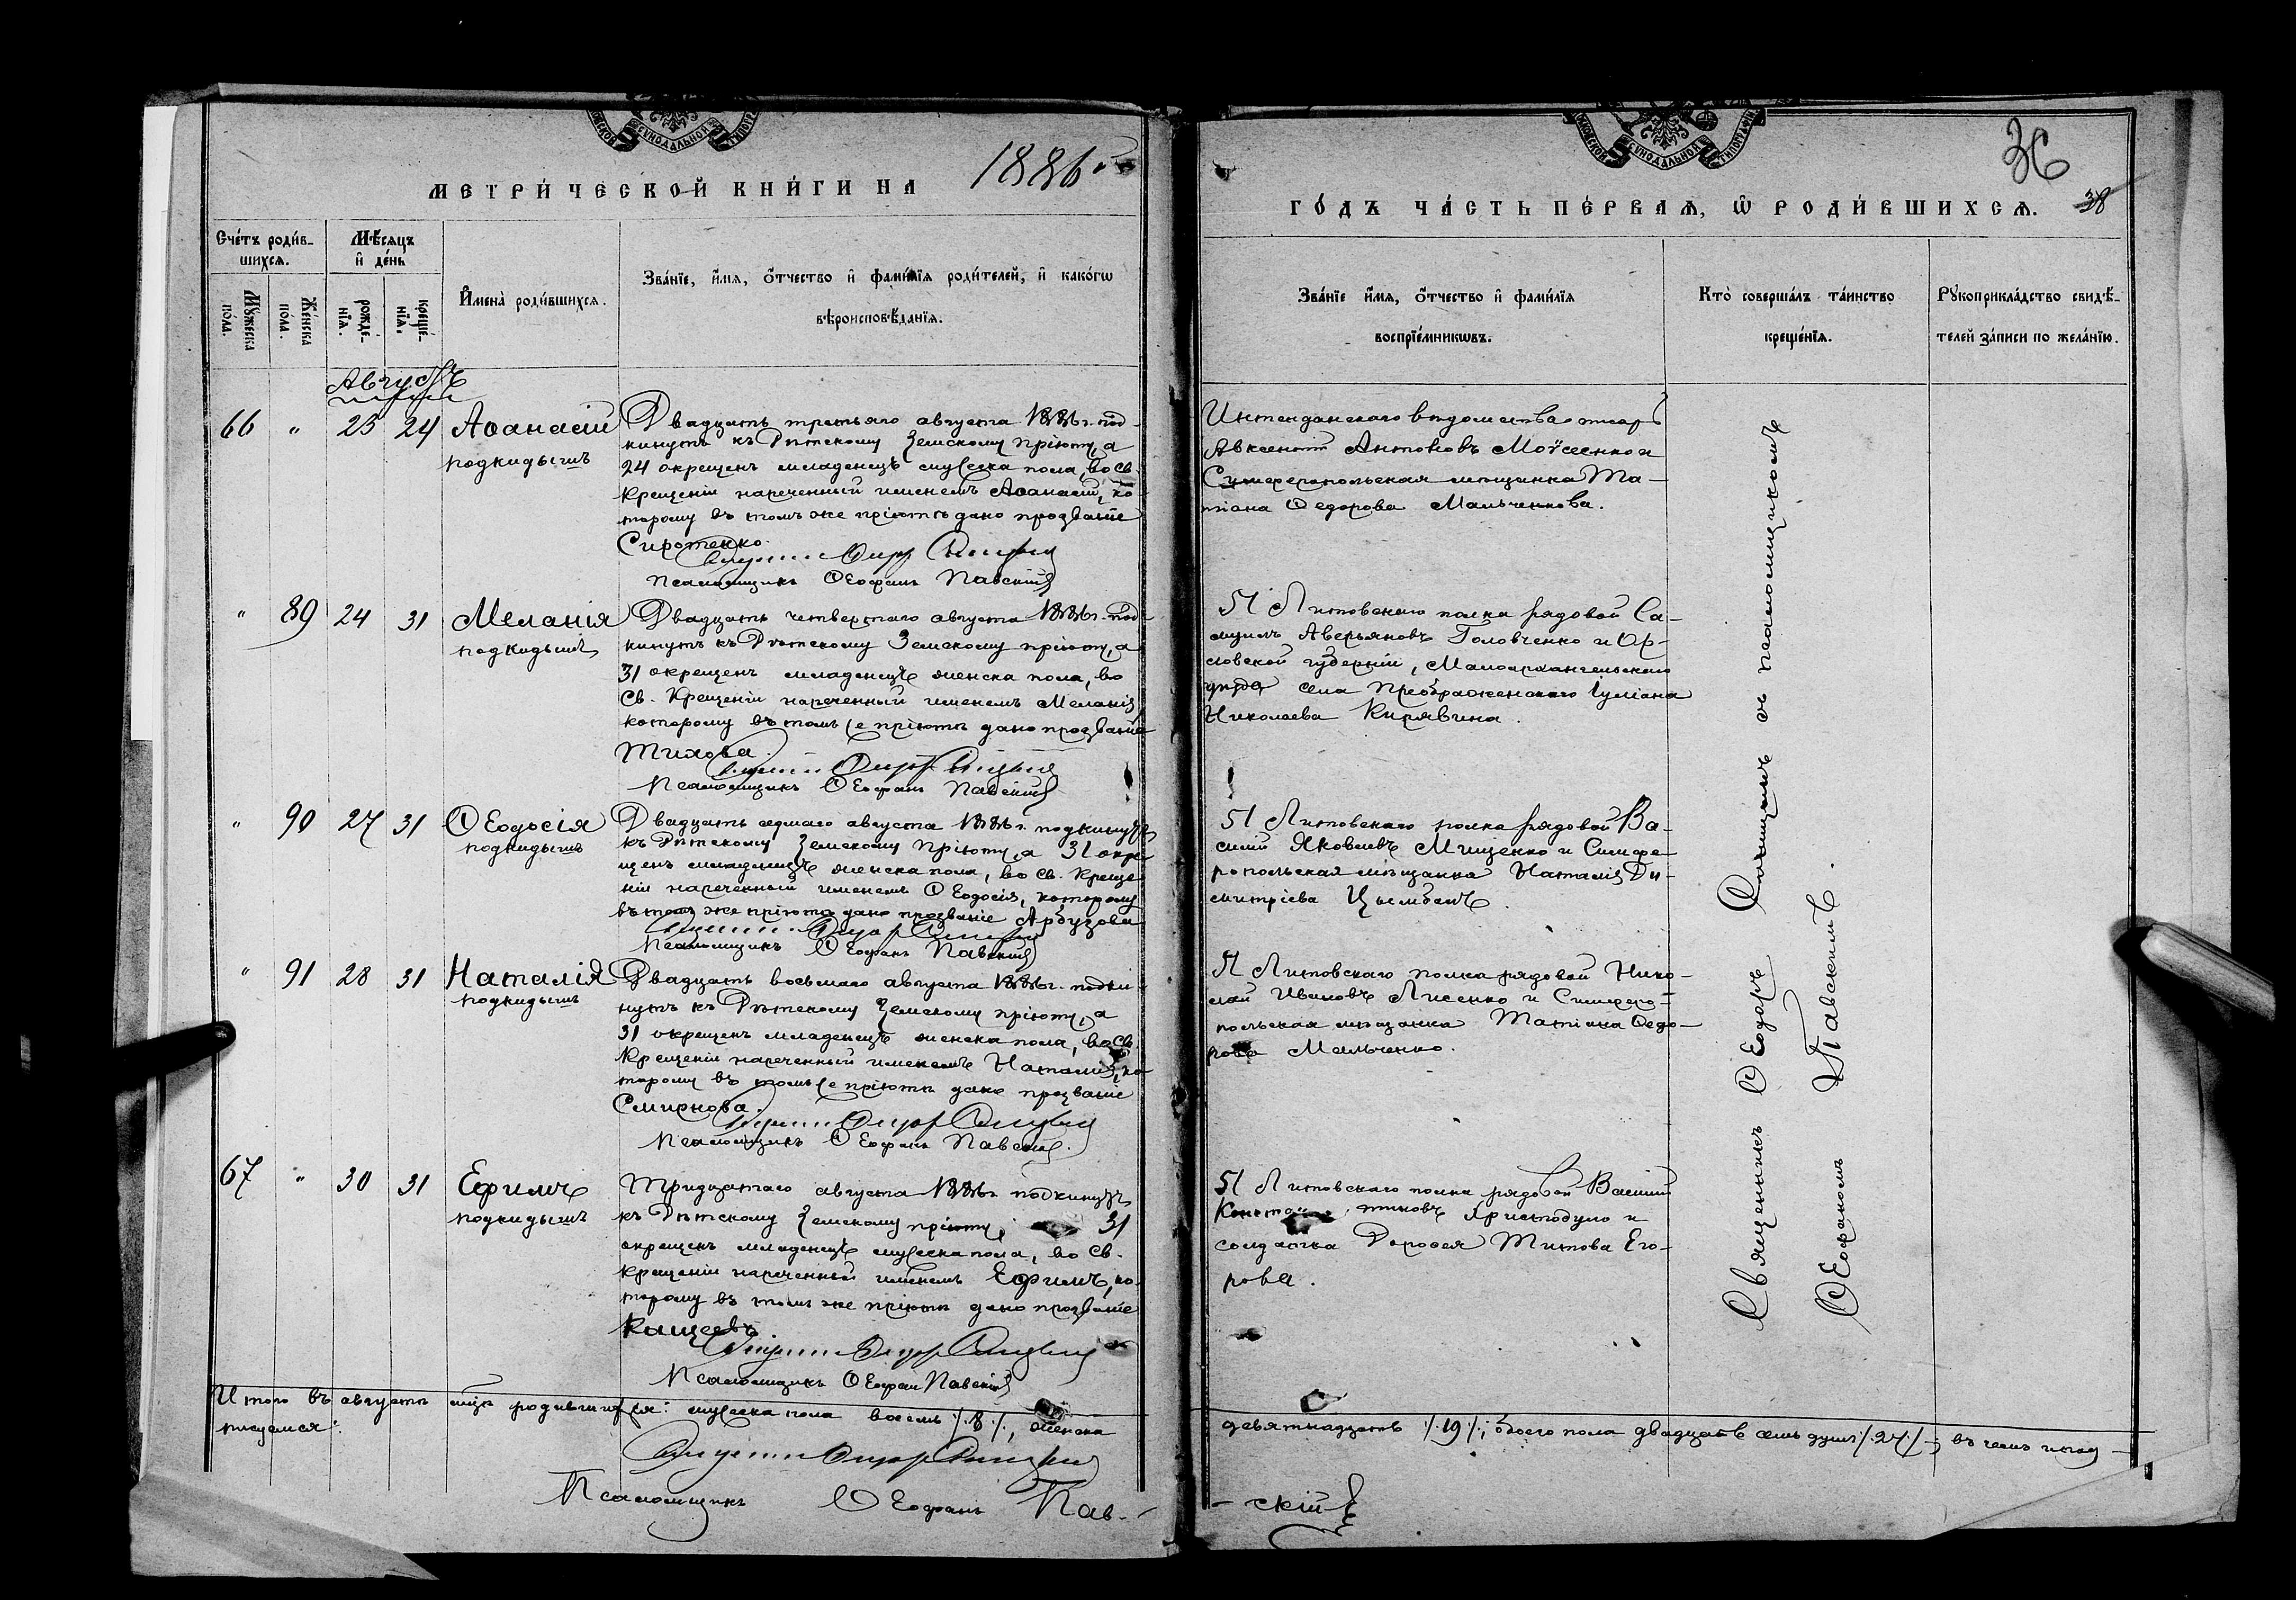 МЕТРИЧЕСКОЙ КНИГИ НА 1886 г.
Счетъ родившихся.
Мѣсяцъ и день
Мужеска пола.
Женска пола.
рожденія.
крещенія.
Имена родившихся.
Званіе, имя, отчество и фамилія родителей, и какогѡ
вѣроисповѣданія.
Августъ
66 " 23 24 Аѳанасій
подкидышъ
Двадцать третьяго августа 1886 г. под-
кинутъ къ Дѣтскому Земскому пріюту, а
24 окрещенъ младенецъ мужеска пола, во св.
Крещеніи нареченный именемъ Аѳанасій, ко-
торому въ томъ же пріютѣ дано прозваніе
Сиротенко.
Псаломщикъ Ѳеофанъ Павскій
" 89 24 31 Меланія
подкидышъ
Двадцать четвертаго августа 1886 г. под-
кинутъ къ Дѣтскому Земскому пріюту, а
31 окрещенъ младенецъ женска пола, во
Св. Крещеніи нареченный именемъ Меланія,
которому въ томъ же пріютѣ дано прозваніе
Тихова.
Псаломщикъ Ѳеофанъ Павскій
" 90 27 31 Ѳеодосія
подкидышъ
Двадцать седмаго августа 1886 г. подкинутъ
къ Дѣтскому Земскому Пріюту, а 31 окре-
щенъ младенецъ женска пола, во св. Креще-
ніи нареченный именемъ Ѳеодосія, которому
въ томъ же пріютѣ дано прозваніе Арбузова
Псаломщикъ Ѳеофанъ Павскій
" 91 28 31 Наталія
подкидышъ
Двадцать восьмаго августа 1886 г. подки-
нутъ къ Дѣтскому Земскому пріюту, а
31 окрещенъ младенецъ женска пола, во Св.
Крещеніи нареченный именемъ Наталія, ко-
торому въ томъ же пріютѣ дано прозваніе
Смирнова.
Псаломщикъ Ѳеофанъ Павскій.
67 " 30 31 Ефимъ
подкидышъ
Тридцатаго августа 1886 г. подкинутъ
къ Дѣтскому Земскому пріюту, 31
окрещенъ младенецъ мужеска пола, во св.
Крещеніи нареченный именемъ Ефимъ, ко-
торому въ томъ же пріютѣ дано прозваніе
Кащеевъ.
Псаломщикъ Ѳеофанъ Павскій
Итого въ августѣ мцѣ родившихся: мужеска пола восемь /.8./, женска
писуемся:
Псаломщикъ Ѳеофанъ Пав-
36
38
ГОДЪ ЧАСТЬ ПЕРВАЯ, Ѡ РОДИВШИХСЯ.
Званіе имя, отчество и фамилія
воспріемникѡвъ.
Кто совершалъ таинство
крещенія.
Рукоприкладство свидѣ-
телей записи по желанію.
Интенданскаго вѣдомства писарь
Авксентій Антоновъ Моѵсеенко и
Симферопольская мѣщанка Та-
тіана Ѳедорова Мальченкова.
51 Литовскаго полка рядовой Са-
муилъ Аверьяновъ Головченко и Ор-
ловской губерніи, Малоархангельскаго
уѣзда села Преображенскаго Іуліана
Николаева Кирявина.
51 Литовскаго полка рядовой Ва-
силій Яковлевъ Мищенко и Симфе-
ропольская мѣщанка Наталія Ди-
митріева Цымбалъ.
51 Литовскаго полка рядовой Нико-
лай Ивановъ Лисенко и Симферо-
польская мѣщанка Татіана Ѳедо-
рова Мальченко.
51 Литовскаго полка рядовой Василій
Константиновъ Христодуло и
солдатка Дороѳея Титова Его-
рова.
Священникъ Ѳеодоръ съ псаломщикомъ
Ѳеофаномъ Павскимъ.
девятнадцать /.19./, обоего пола двадцать семь душъ /.27./, въ чемъ и под-
-скій